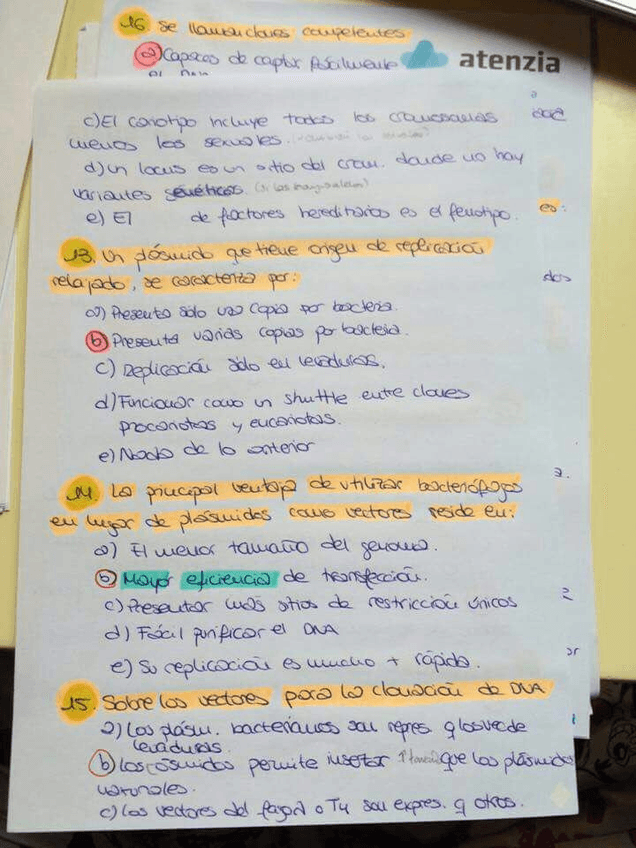 16 Se llaman clones competentes
a) Capaces de captar fácilmente
el DNA
atenzia
c) El cariotipo incluye todos los cromosomas
menos los sexuales.
d) Un locus es un sitio del crom. donde no hay
variantes genéticas
e) El de factores hereditarios es el fenotipo.
es:
13. Un plásmido que tiene origen de replicación
relajado, se caracteriza por:
dos
a) Presenta sólo una copia por bacteria.
b) Presenta varias copias por bacteria.
c) Replicación sólo en levaduras.
d) Funcionar como un shuttle entre clones
procariotas y eucariotas.
e) Nada de lo anterior
14. La principal ventaja de utilizar bacteriófagos
en lugar de plásmidos como vectores reside en:
a) El menor tamaño del genoma.
b) Mayor eficiencia de transfección.
c) Presentar más sitios de restricción únicos
d) Fácil purificar el DNA
e) Su replicación es mucho + rápida.
15. Sobre los vectores para la clonación de DNA
a) Los plásm. bacterianos son
levaduras.
b) Los cósmidos permite insertar que los plásmidos
normales.
c) Los vectores del fago λ o T4 son expres. q otros.